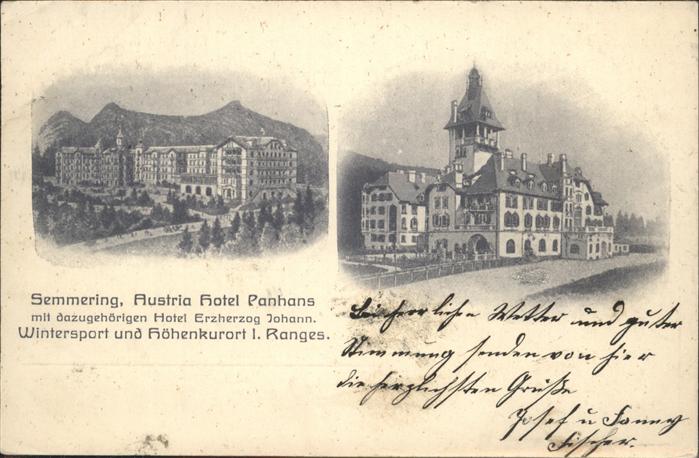 Semmering, Austria Hotel Panhans
mit dazugehörigen Hotel Erzherzog Johann.
Wintersport und Höhenkurort I. Ranges.
Bei herrliche Wetter und guter
Stimmung senden von hier
die herzlichsten Grüße
Josef u Fanny
Fischer.